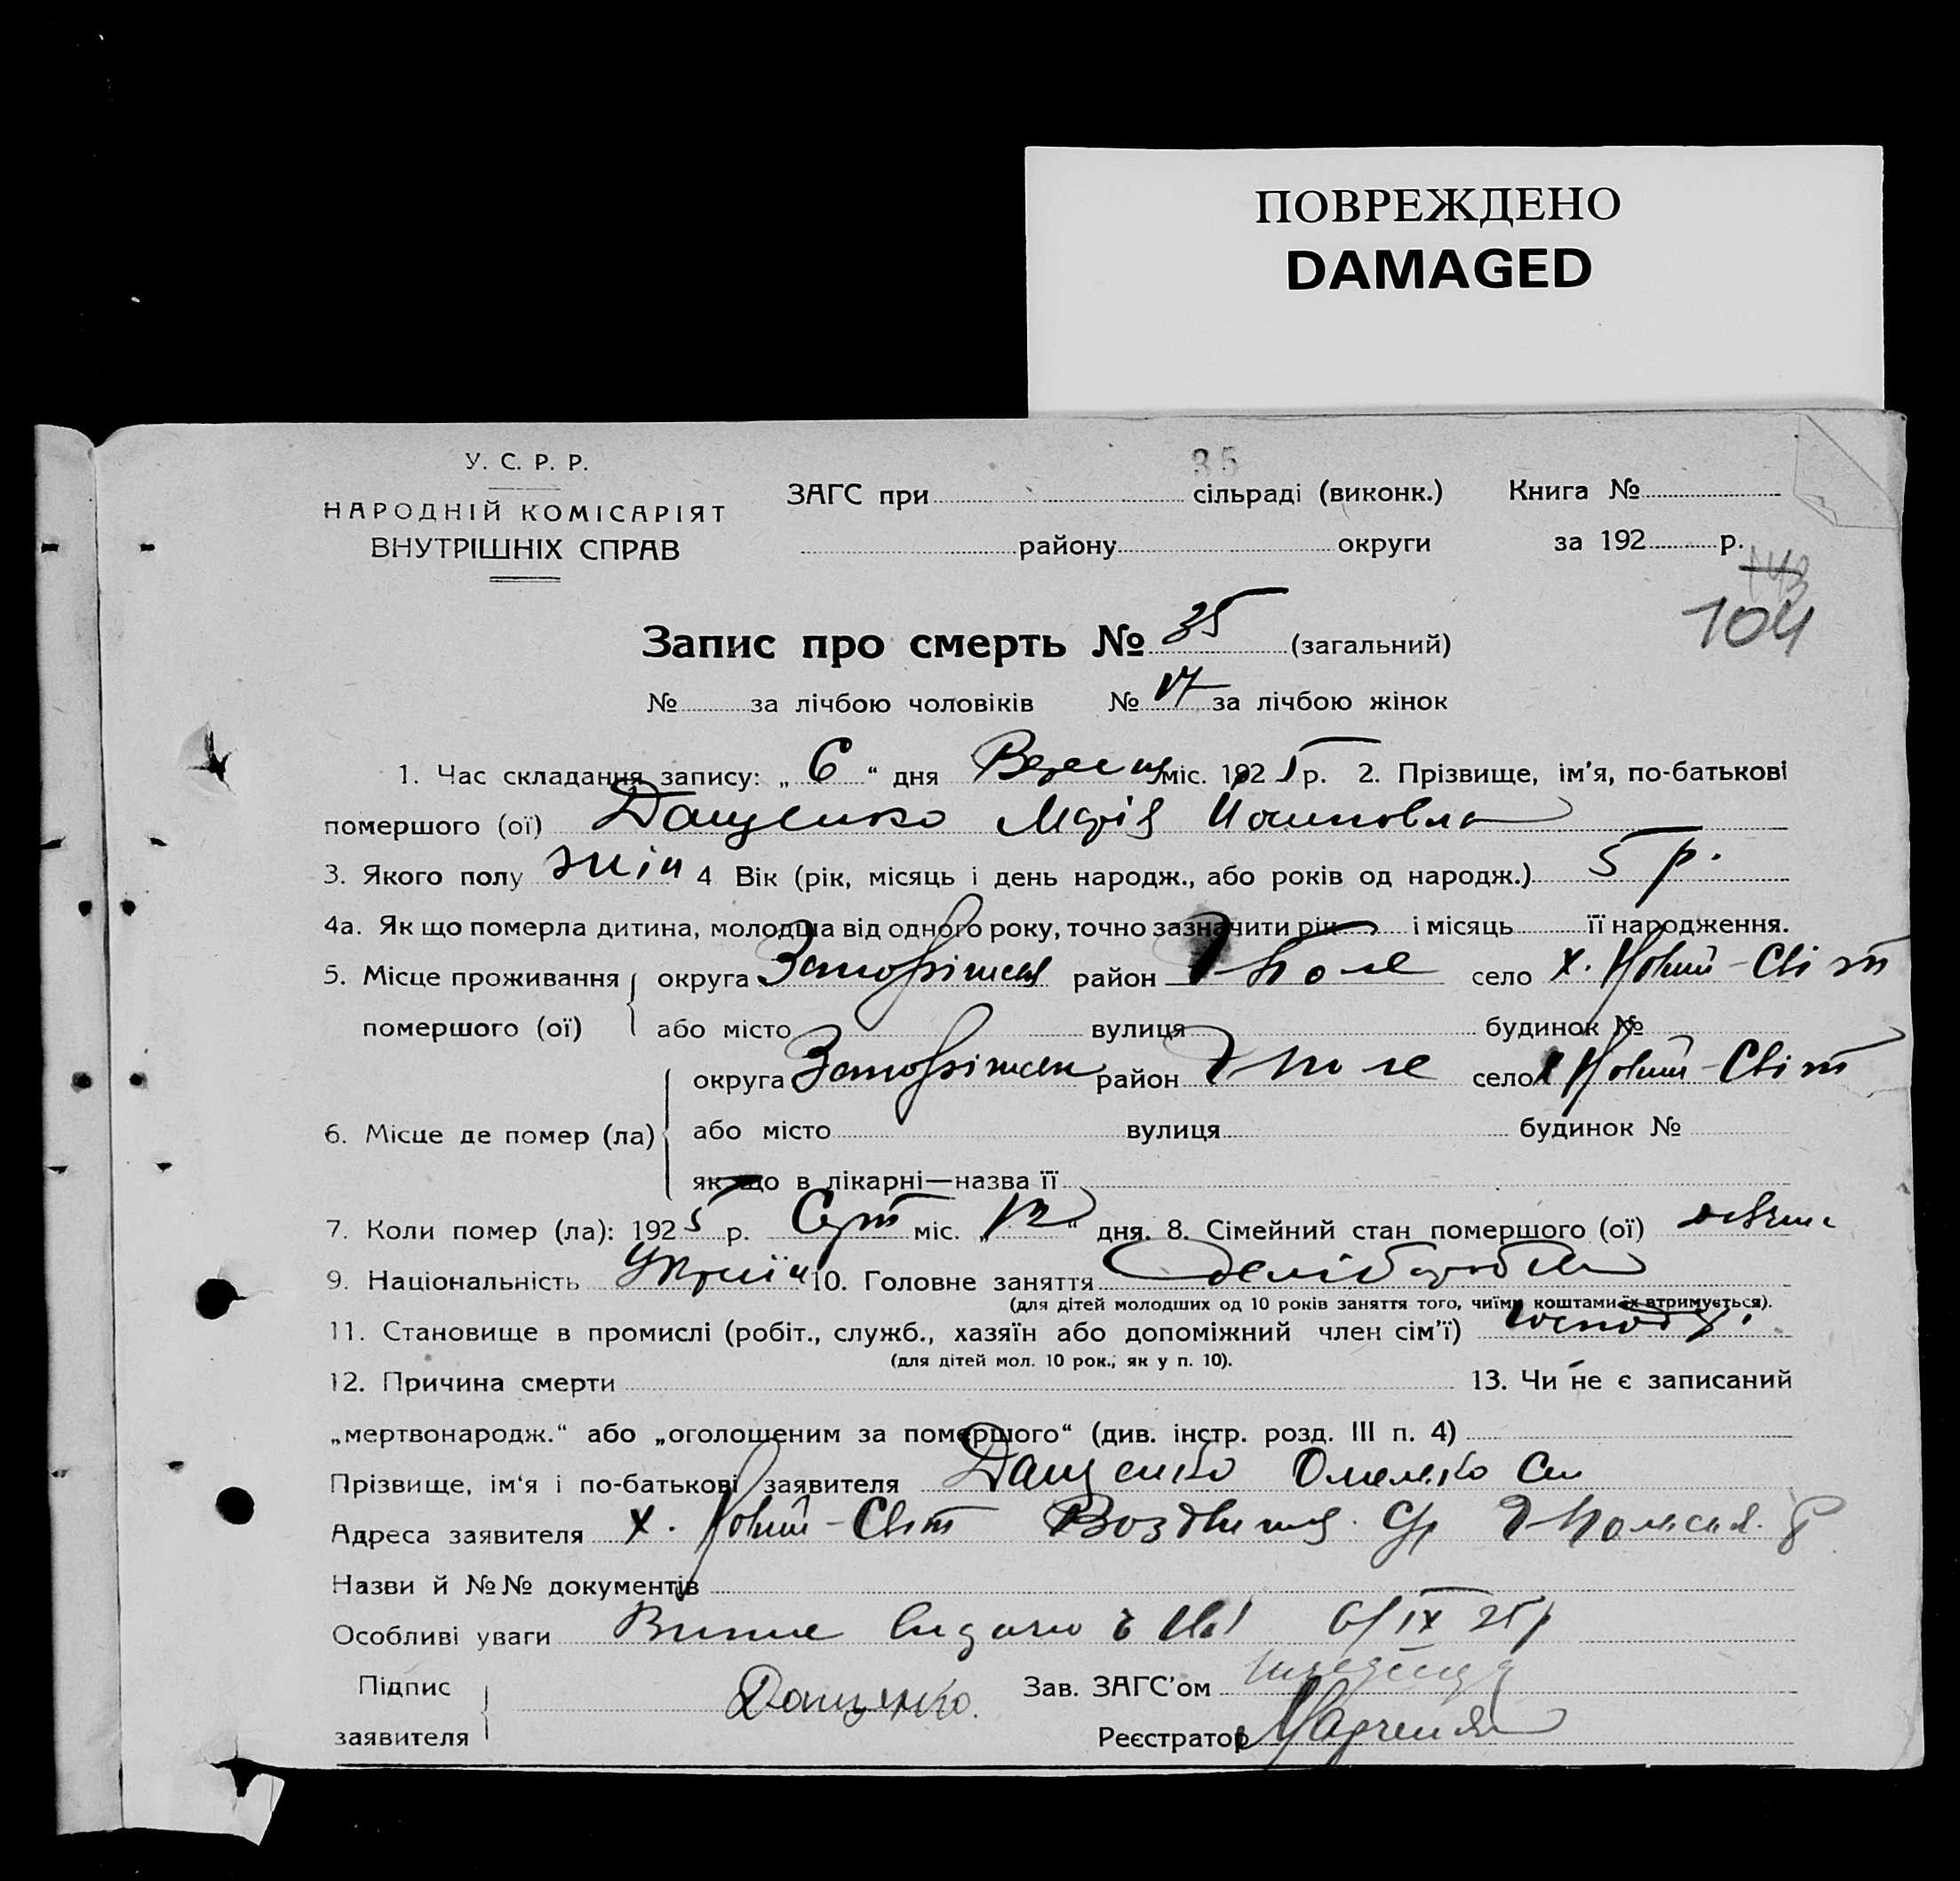 ПОВРЕЖДЕНО
DAMAGED
У. С. Р. Р.
НАРОДНІЙ КОМІСАРІЯТ
ВНУТРІШНІХ СПРАВ
35
ЗАГС при сільраді (виконк.) Книга №
району округи за 192 р.
143
104
Запис про смерть № 35 (загальний)
№ за лічбою чоловіків № 17 за лічбою жінок
1. Час складання запису: „ 6 “ дня міс. 192 5 р. 2. Прізвище, ім'я, по-батькові
помершого (ої) Дащенко Марія
3. Якого полу жін 4 Вік (рік, місяць і день народж., або років од народж.) 5 р.
4а. Як що померла дитина, молодша від одного року, точно зазначити рік і місяць її народження.
5. Місце проживання округа район село х. Новий-Світ
помершого (ої) або місто вулиця будинок №
округа район село х Новий-Світ
6. Місце де помер (ла) або місто вулиця будинок №
як що в лікарні—назва її
7. Коли помер (ла): 192 5 р. Серп міс. „ “ дня. 8. Сімейний стан помершого (ої)
9. Національність 10. Головне заняття
(для дітей молодших од 10 років заняття того, чиїми коштами їх втримується).
11. Становище в промислі (робіт., служб., хазяїн або допоміжний член сім'ї)
(для дітей мол. 10 рок., як у п. 10).
12. Причина смерти 13. Чи не є записаний
„мертвонародж.“ або „оголошеним за помершого“ (див. інстр. розд. III п. 4)
Прізвище, ім'я і по-батькові заявителя Дащенко Омелько
Адреса заявителя х. Новий-Світ
Назви й №№ документів
Особливі уваги 6/IX 25 р
Підпис Дащенко. Зав. ЗАГС'ом
заявителя Реєстратор